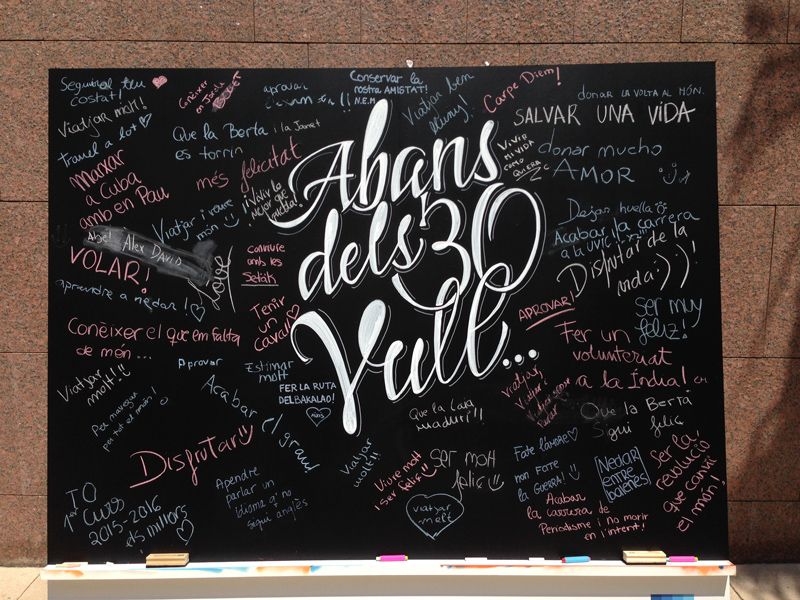 Abans
dels 30
Vull...
Seguir al teu
costat!
Viatjar molt!
travel a lot
Marxar
a Cuba
amb en Pau
Conèixer
en Jordi
aprovar
Conservar la
nostra AMISTAT!
N.E.M
Viatjar ben
lluny!
Carpe Diem!
donar LA VOLTA AL MÓN.
SALVAR UNA VIDA
Que la Berta i la Janet
es torrin
més felicitat
¡Vivir lo
mejor que
pueda!
VIVIR
MI VIDA
COMO
QUIERA
donar mucho
AMOR :)
Alex David
Viatjar i veure
món
VOLAR!
love
aprendre a nedar!
Conviure
amb les
Setäk
Tenir
un
cavall
Dejar huella
Acabar la carrera
a la UVIC
Disfrutar de la
vida:))!
APROVAR!
ser muy
feliz!
Conèixer el que em falta
de món...
Aprovar
Estimar
molt
FER LA RUTA
DELBAKALAO!
Fer un
voluntariat
a la Índia!
Viatjar
molt!!
Per navegar
per tot el món!
Acabar
el grau
Viatjar,
Viatjar i
Que la Laia
maduri!!
Que la Berta
sigui feliç
Disfrutar!!
Viatjar
molt!!
Viure molt
i ser feliç!
ser molt
feliç
viatjar
molt
Fote l'amore
non fote
la guerra!
Nedar
entre
balenes
Ser la
revolució
que canviï
el món!
TO
1er Curs
2015-2016
els millors
Apendre
parlar un
idioma q' no
sigui anglès
Acabar
la carrera de
Periodisme i no morir
en l'intent!